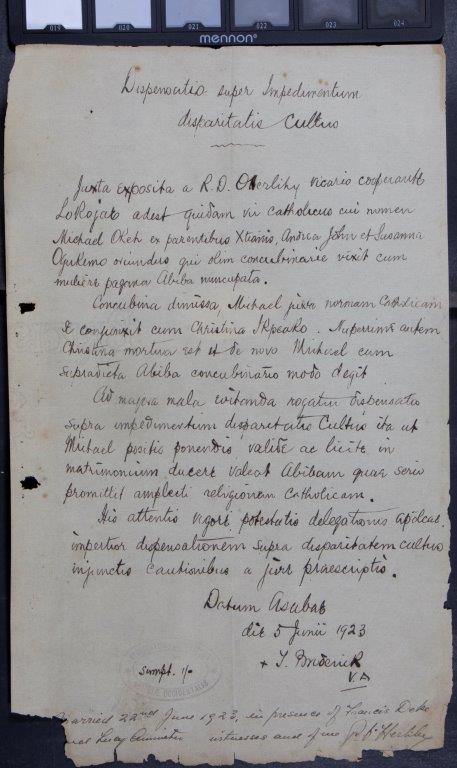 019 020 021 022 023 024
mennon
Dispensatio super Impedimentum
disparitatis Cultus
Juxta exposita a R.D. vicario cooperante
Lokojae adest quidam vir catholicus cui nomen
Michael Okeh ex parentibus Xtianis, Andrea John et Susanna
oriundus qui olim concubinarie vixit cum
muliere pagana Abiba nuncupata.
Concubina dimissa, Michael juxta normam Catholicam
se conjunxit cum Christina Ikpeako. Nuperrime autem
Christina mortua est et de novo Michael cum
supradicta Abiba concubinario modo degit
Ad majora mala evitanda rogatur dispensatio
supra impedimentum disparitatis Cultus ita ut
Michael positis ponendis, valide ac licite in
matrimonium ducere valeat Abibam quae serio
promittit amplecti religionem Catholicam.
His attentis vigore potestatis delegationis apolcae
impertior dispensationem supra disparitatem cultus
injunctis cautionibus a jure praescriptis.
Datum Asabae
die 5 Junii 1923
+ T. Broderick
V.A
sumpt. 1/-
OCCIDENTALIS
Married 22nd June 1923, in presence of Francis Doko
and Lucy witnesses and of me